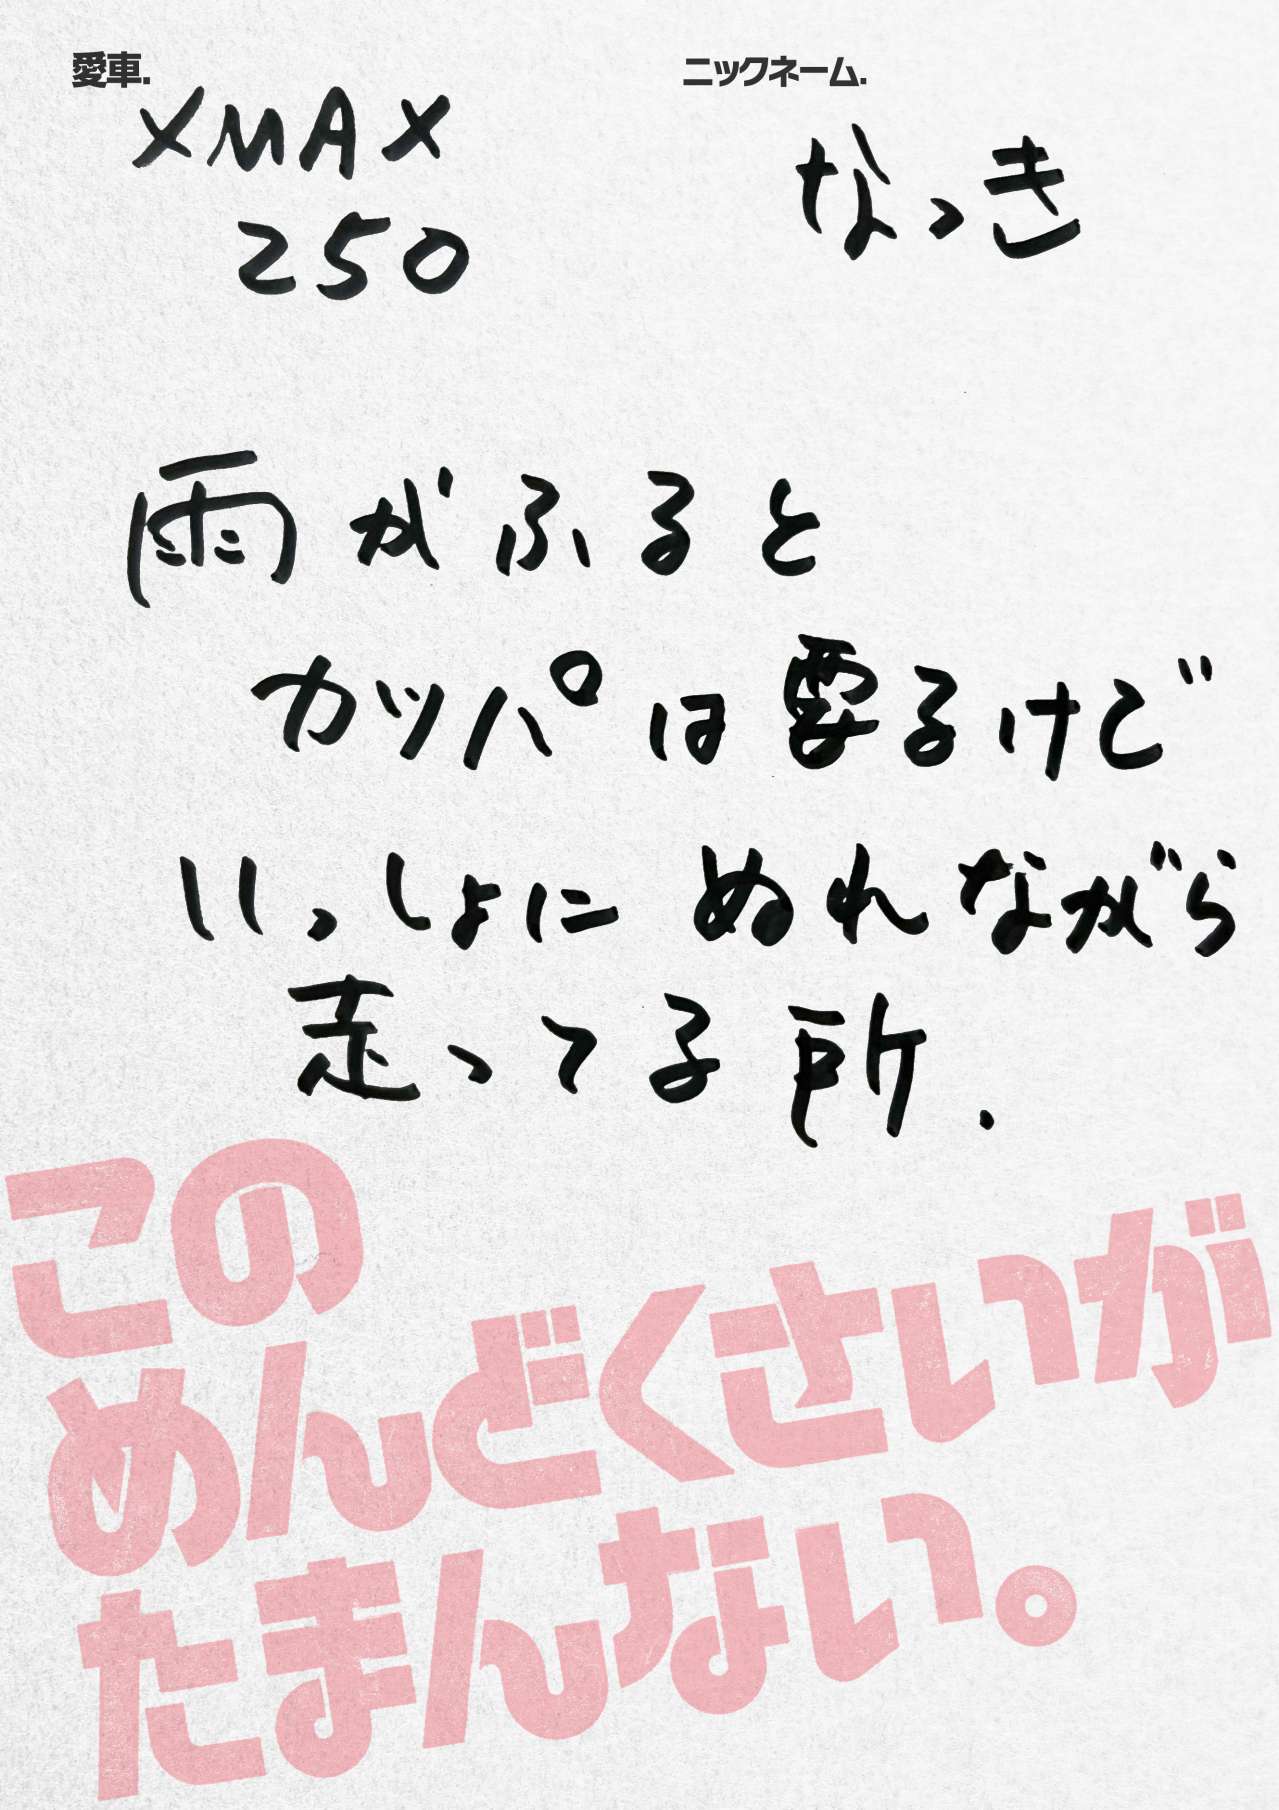 愛車.
ニックネーム.
XMAX
250
なっき
雨がふると
カッパは要るけど
いっしょに ぬれながら
走ってる所.
この
めんどくさいが
たまんない。